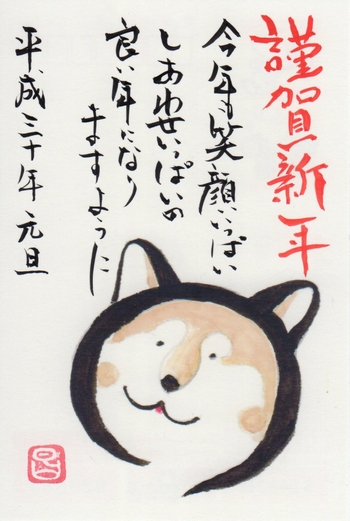 謹賀新年
今年も笑顔いっぱい
しあわせいっぱいの
良い年になり
ますように
平成三十年 元旦